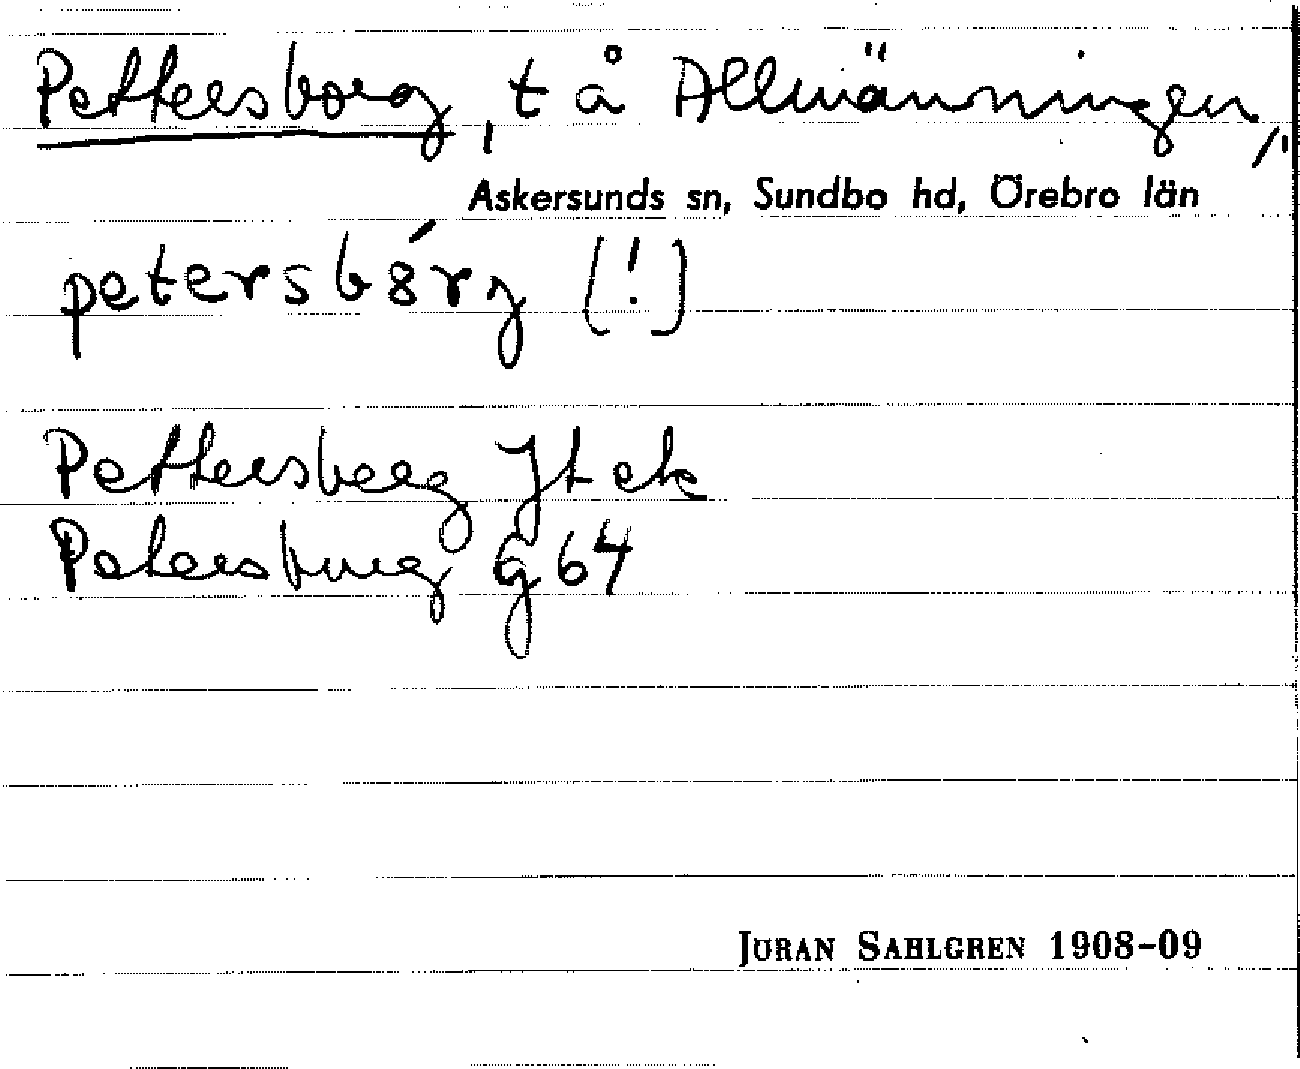 Pettersborg, t å Allmänningen,
Askersunds sn, Sundbo hd, Örebro län
petersbórg [!]
Pettersberg Jt ek
Petersburg G 64
JÖRAN SAHLGREN 1908-09